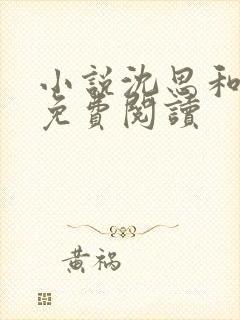 小說沈思和
免費閱讀
黃禍